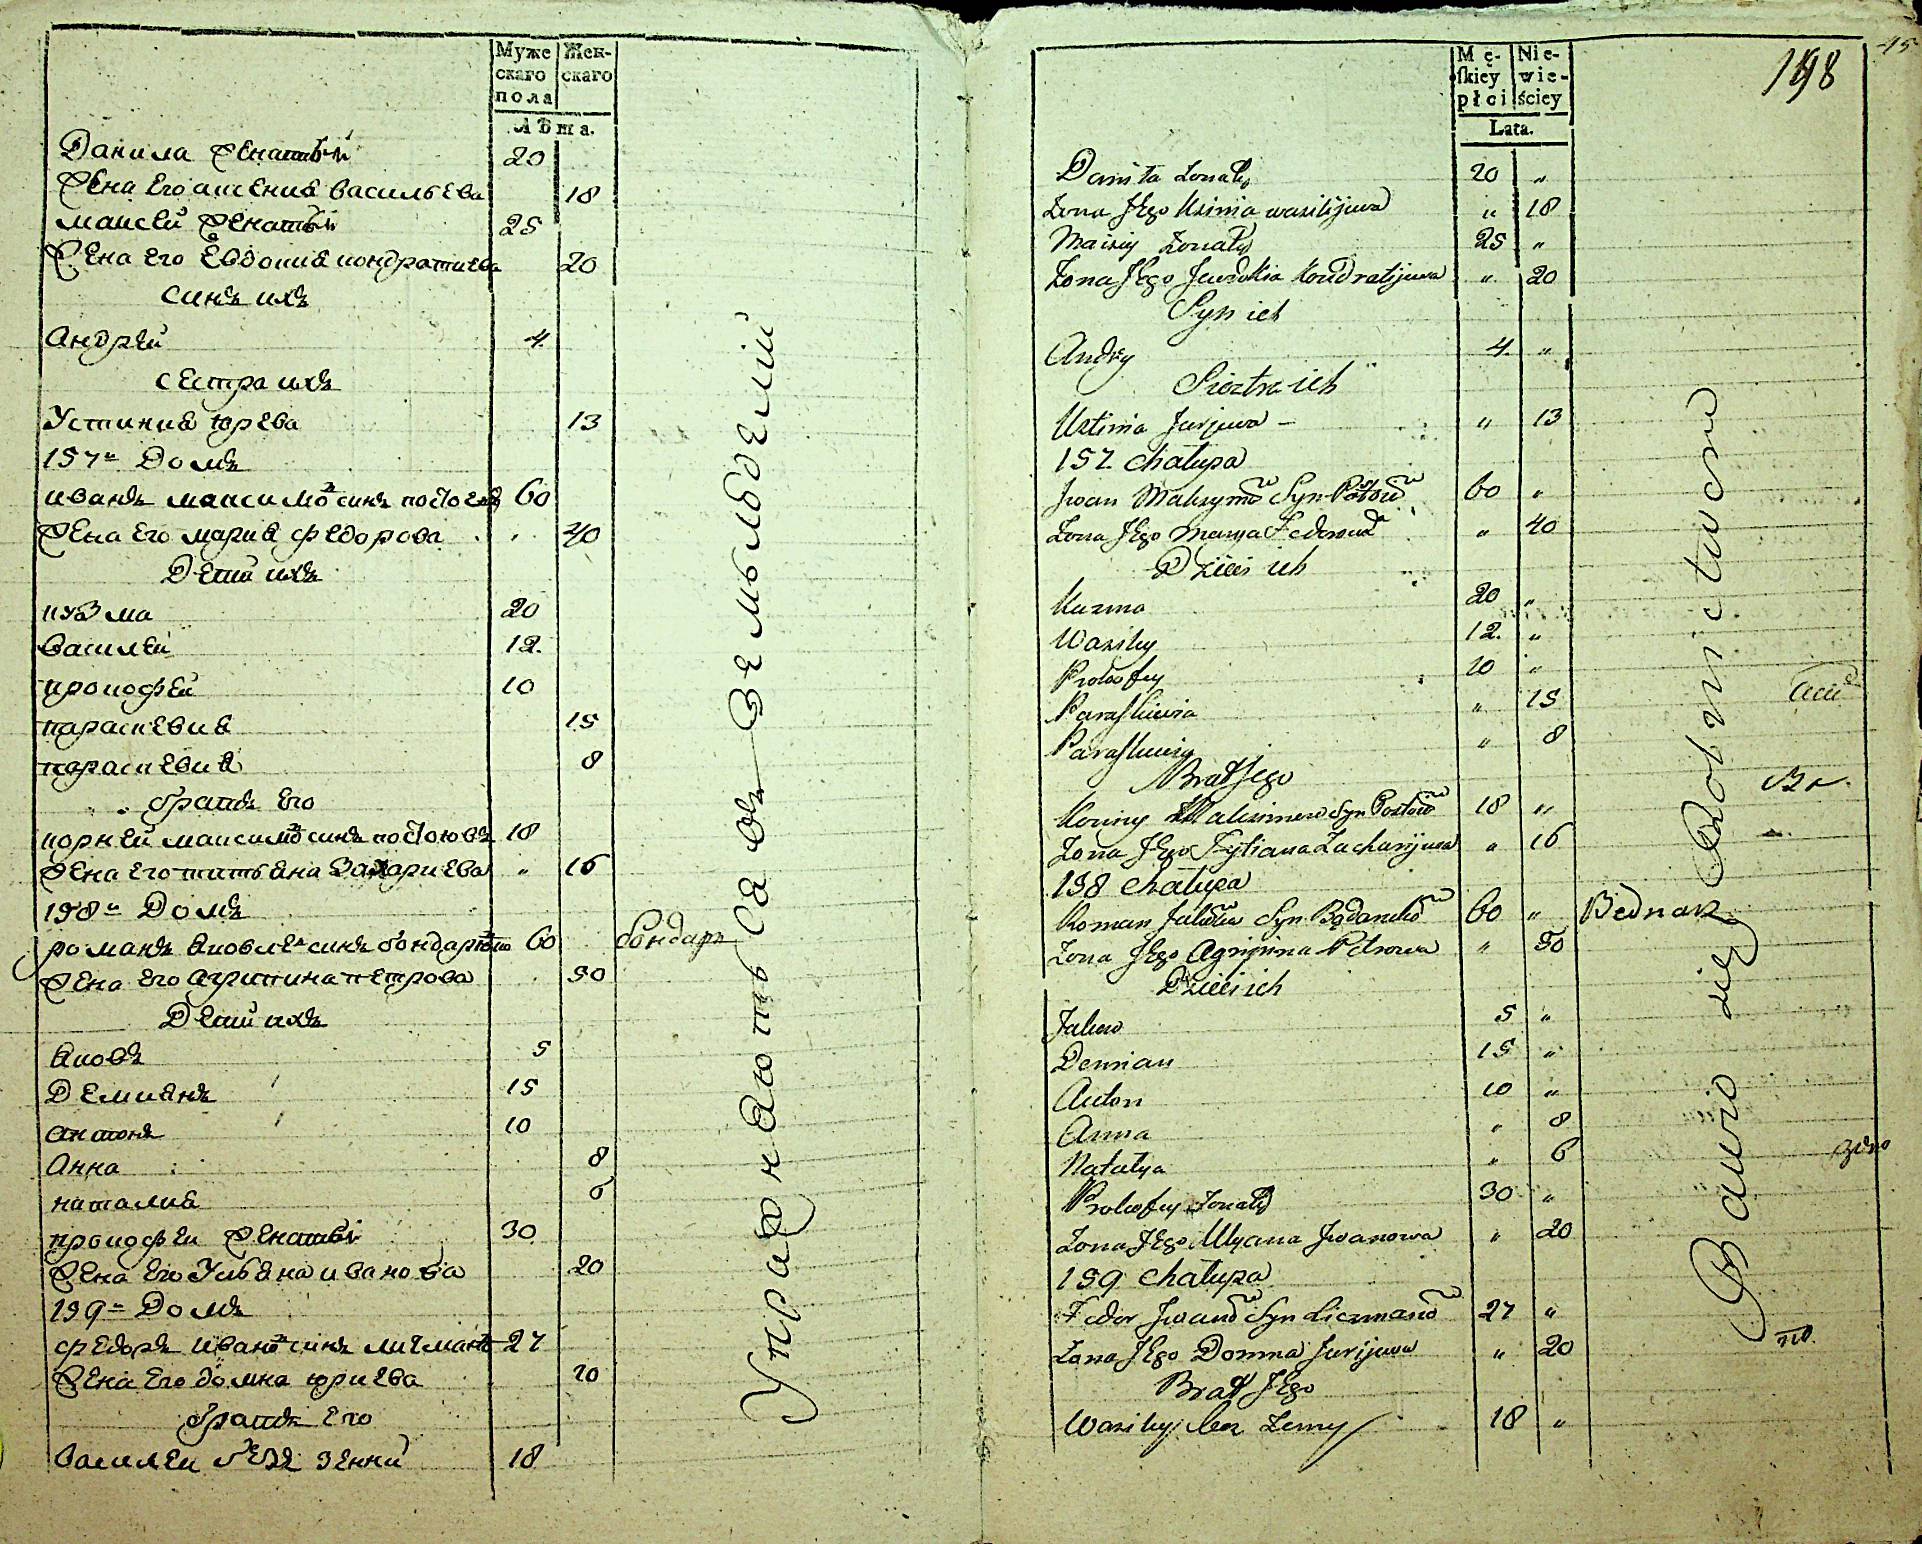 Муже
скаго
пола
Жен-
скаго
Лѣта.
Данила Женатый 20
Жена Его аксения васильева 18
Максей Женатый 25
Жена Его Евдокия кондратиева 20
Синъ ихъ
Андрей 4
Сестра ихъ
Устиния юрева 13
157й Домъ
иванъ максимов синъ постоговъ 60
Жена Его мария федорова 40
Дети ихъ
кузма 20
василей 12
прокофей 10
параскевия 15
параскевия 8
братъ Его
корней максимов синъ постоювъ 18
Жена Его татьяна Захариева " 16
158й Домъ
романъ яковлев синъ бондарко 60 бондарь
Жена Его агрипина петрова 50
Дети ихъ
яковъ 5
Демиянъ 15
антонъ 10
Анна 8
наталия 6
прокофей Женатый 30
Жена Его Ульяна иванова 20
159й Домъ
федоръ иванов синъ личманов 27
Жена Его домна юриева 20
братъ Его
василей без Жени 18
Упражняются въ Земльделии
Mę-
skiey
płci
Nie-
wie-
ściey
Lata.
198
45
Daniła Żonaty 20 "
Żona Jego Ksinia wasilijewa " 18
Maisiey Żonaty 25 "
Żona Jego Jewdokia Kondratijewa " 20
Syn ich
Andrey 4 "
Siostra ich
Ustinia Jurjewa " 13
157 Chałupa
Jwan Maksymow Syn Postow 60 "
Żona Jego Marya Fedorowa " 40
Dzieci ich
Kuzma 20 "
Wasiley 12 "
Prokofey 10 "
Paraskiewia " 15
Paraskiewia " 8
Brat Jego
Korniey Maksimow Syn Postow 18 "
Żona Jego Tytiana Zacharijewa " 16
158 Chałupa
Roman Jakowlew Syn Bondarenko 60 " Bednarz
Żona Jego Agripina Petrowa " 50
Dzieci ich
Jakow 5 "
Demian 15 "
Anton 10 "
Anna " 8
Natalya " 6
Prokofey Żonaty 30 "
Żona Jego Ulyana Jwanowa " 20
159 Chałupa
Fedor Jwanow Syn Liczmanow 27 "
Żona Jego Domna Jurijewa " 20
Brat Jego
Wasiley bez Żony 18 "
Bawio się Rolnictwem